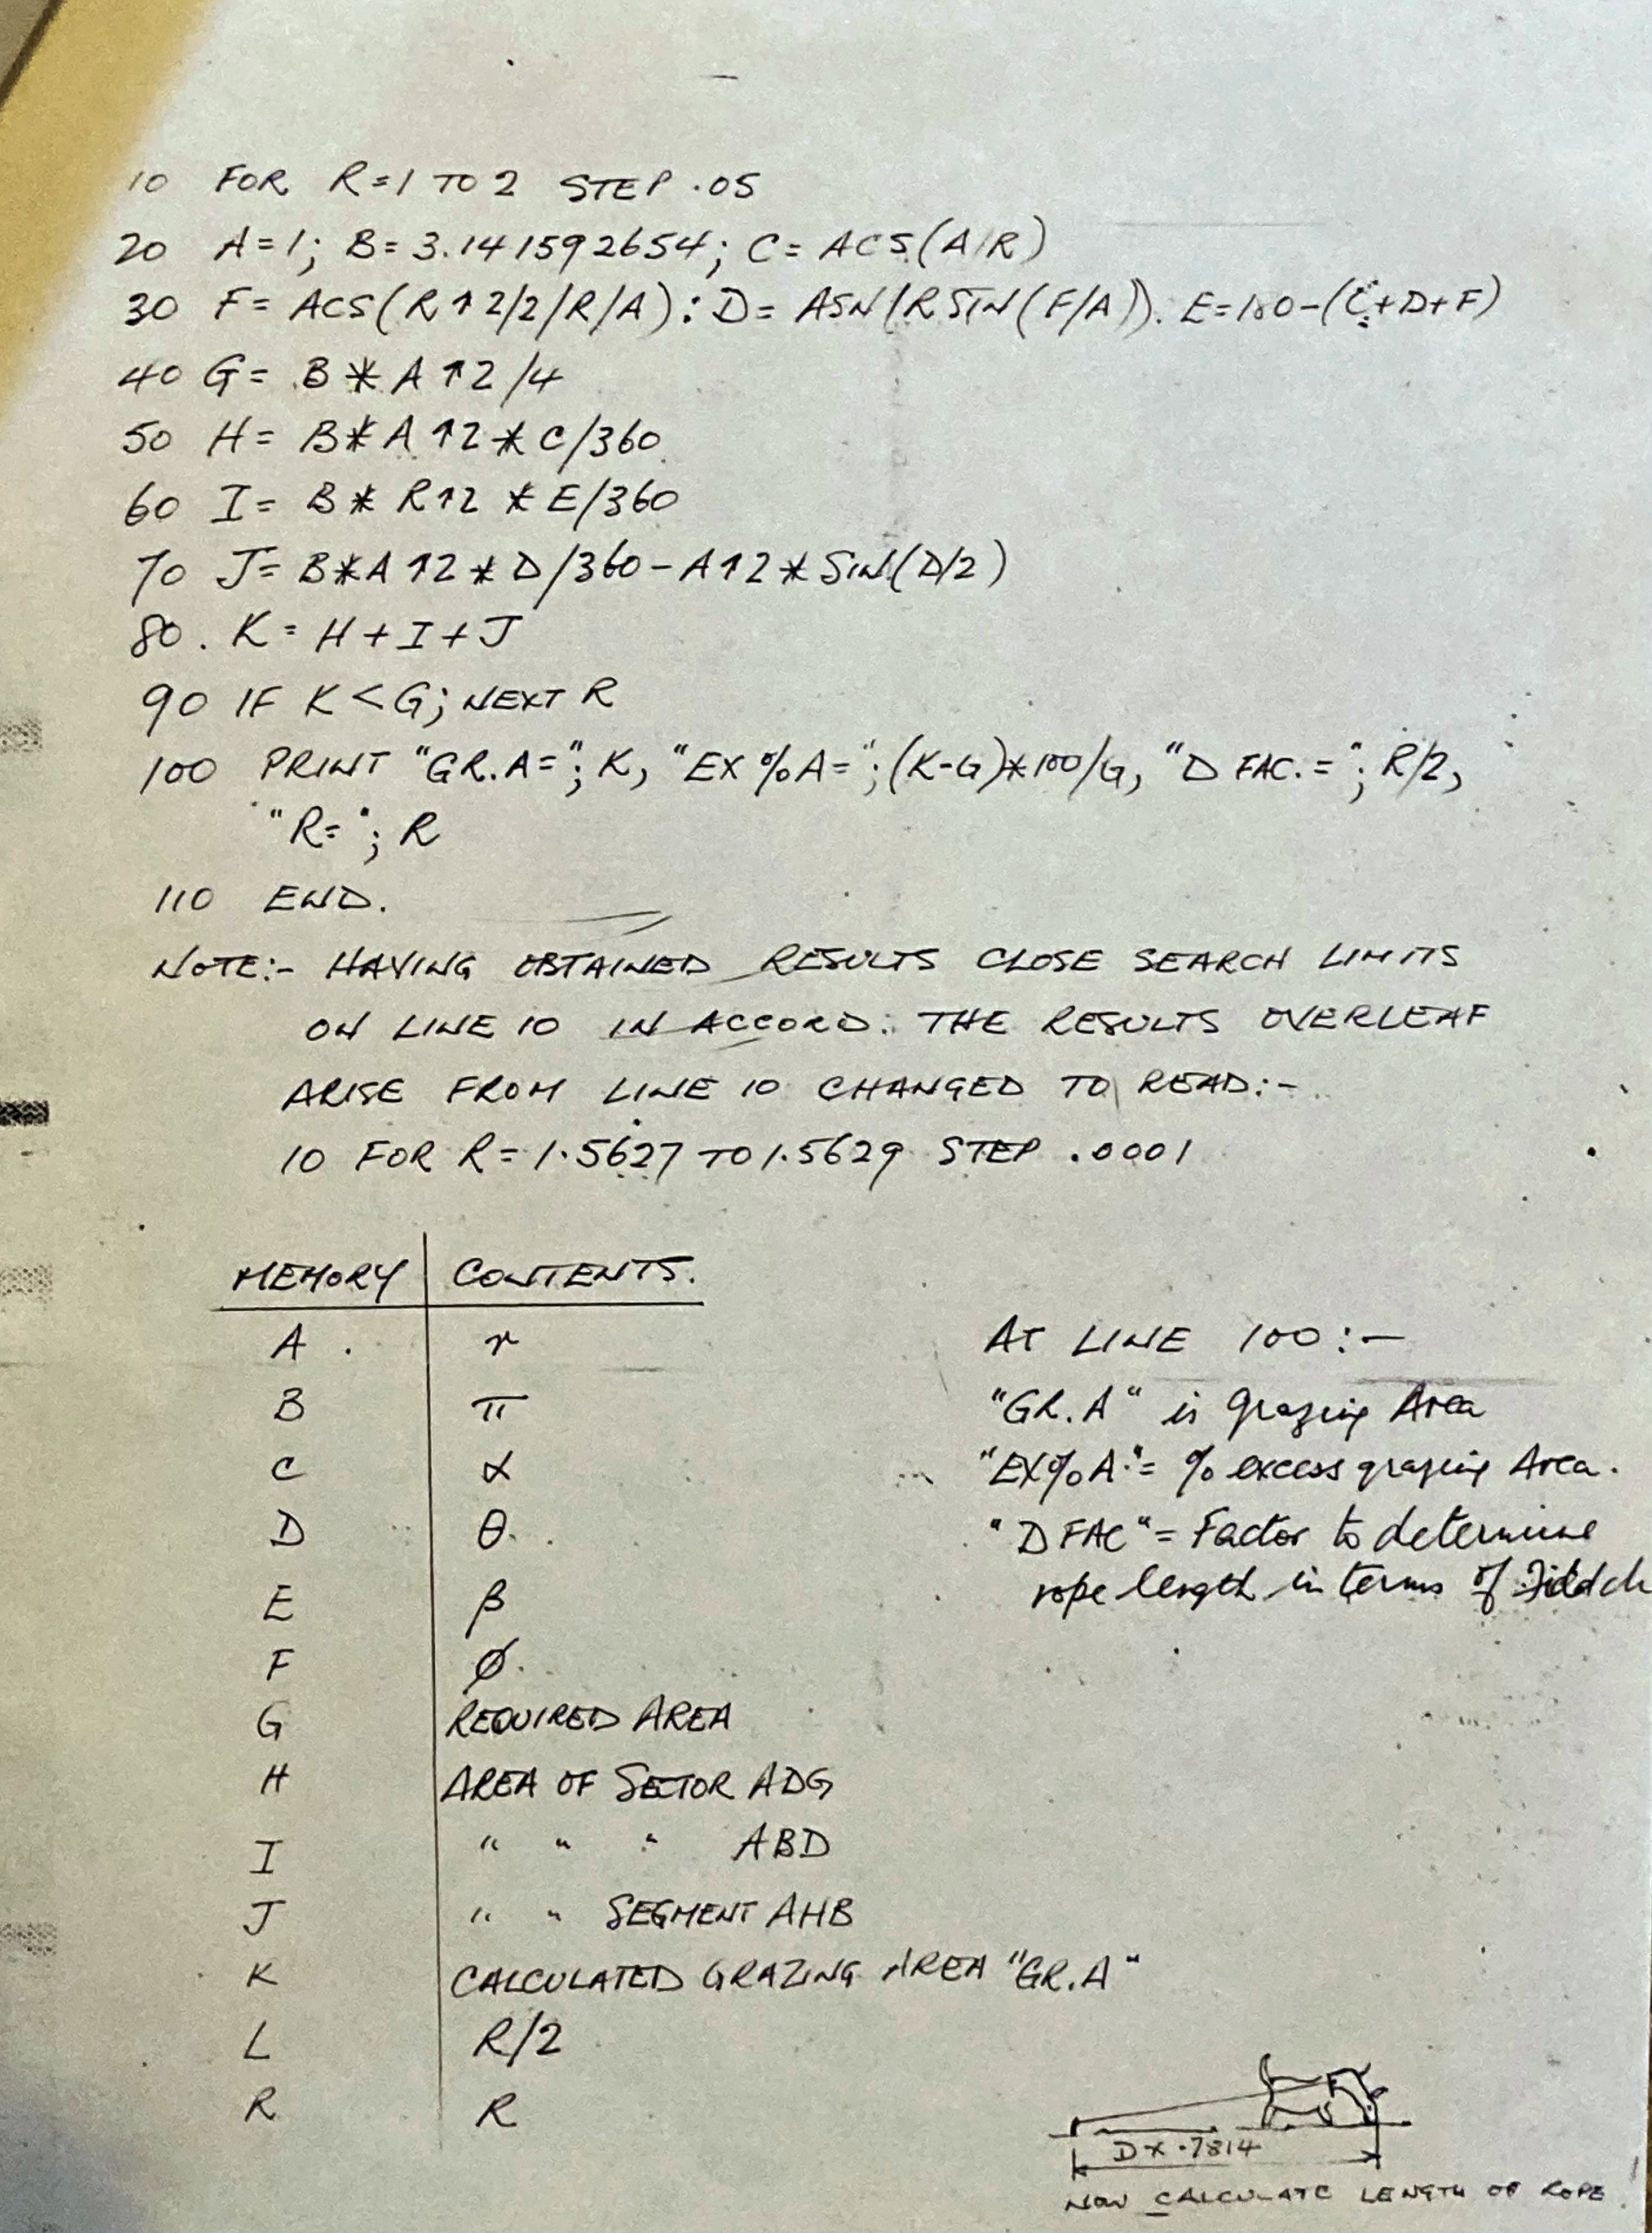 10 FOR R=1 TO 2 STEP .05
20 A=1; B=3.141592654; C= ACS(A/R)
30 F= ACS(R↑2/2/R/A): D= ASN(R SIN(F/A)). E=180-(C+D+F)
40 G= B*A↑2/4
50 H= B*A↑2*C/360
60 I= B*R↑2*E/360
70 J= B*A↑2*D/360-A↑2*SIN(D/2)
80. K= H+I+J
90 IF K<G; NEXT R
100 PRINT "GR.A="; K, "EX%A="; (K-G)*100/G, "D FAC.="; R/2,
"R="; R
110 END.
NOTE:- HAVING OBTAINED RESULTS CLOSE SEARCH LIMITS
ON LINE 10 IN ACCORD. THE RESULTS OVERLEAF
ARISE FROM LINE 10 CHANGED TO READ:-
10 FOR R=1.5627 TO 1.5629 STEP .0001
MEMORY CONTENTS.
A r
B π
C α
D θ
E β
F ø
G REQUIRED AREA
H AREA OF SECTOR ADG
I " " " ABD
J " " SEGMENT AHB
K CALCULATED GRAZING AREA "GR.A"
L R/2
R R
AT LINE 100:-
"GR.A" is grazing Area
"EX%A"= % excess grazing Area.
"D FAC"= Factor to determine
rope length in terms of
D x .7814
NOW CALCULATE LENGTH OF ROPE!